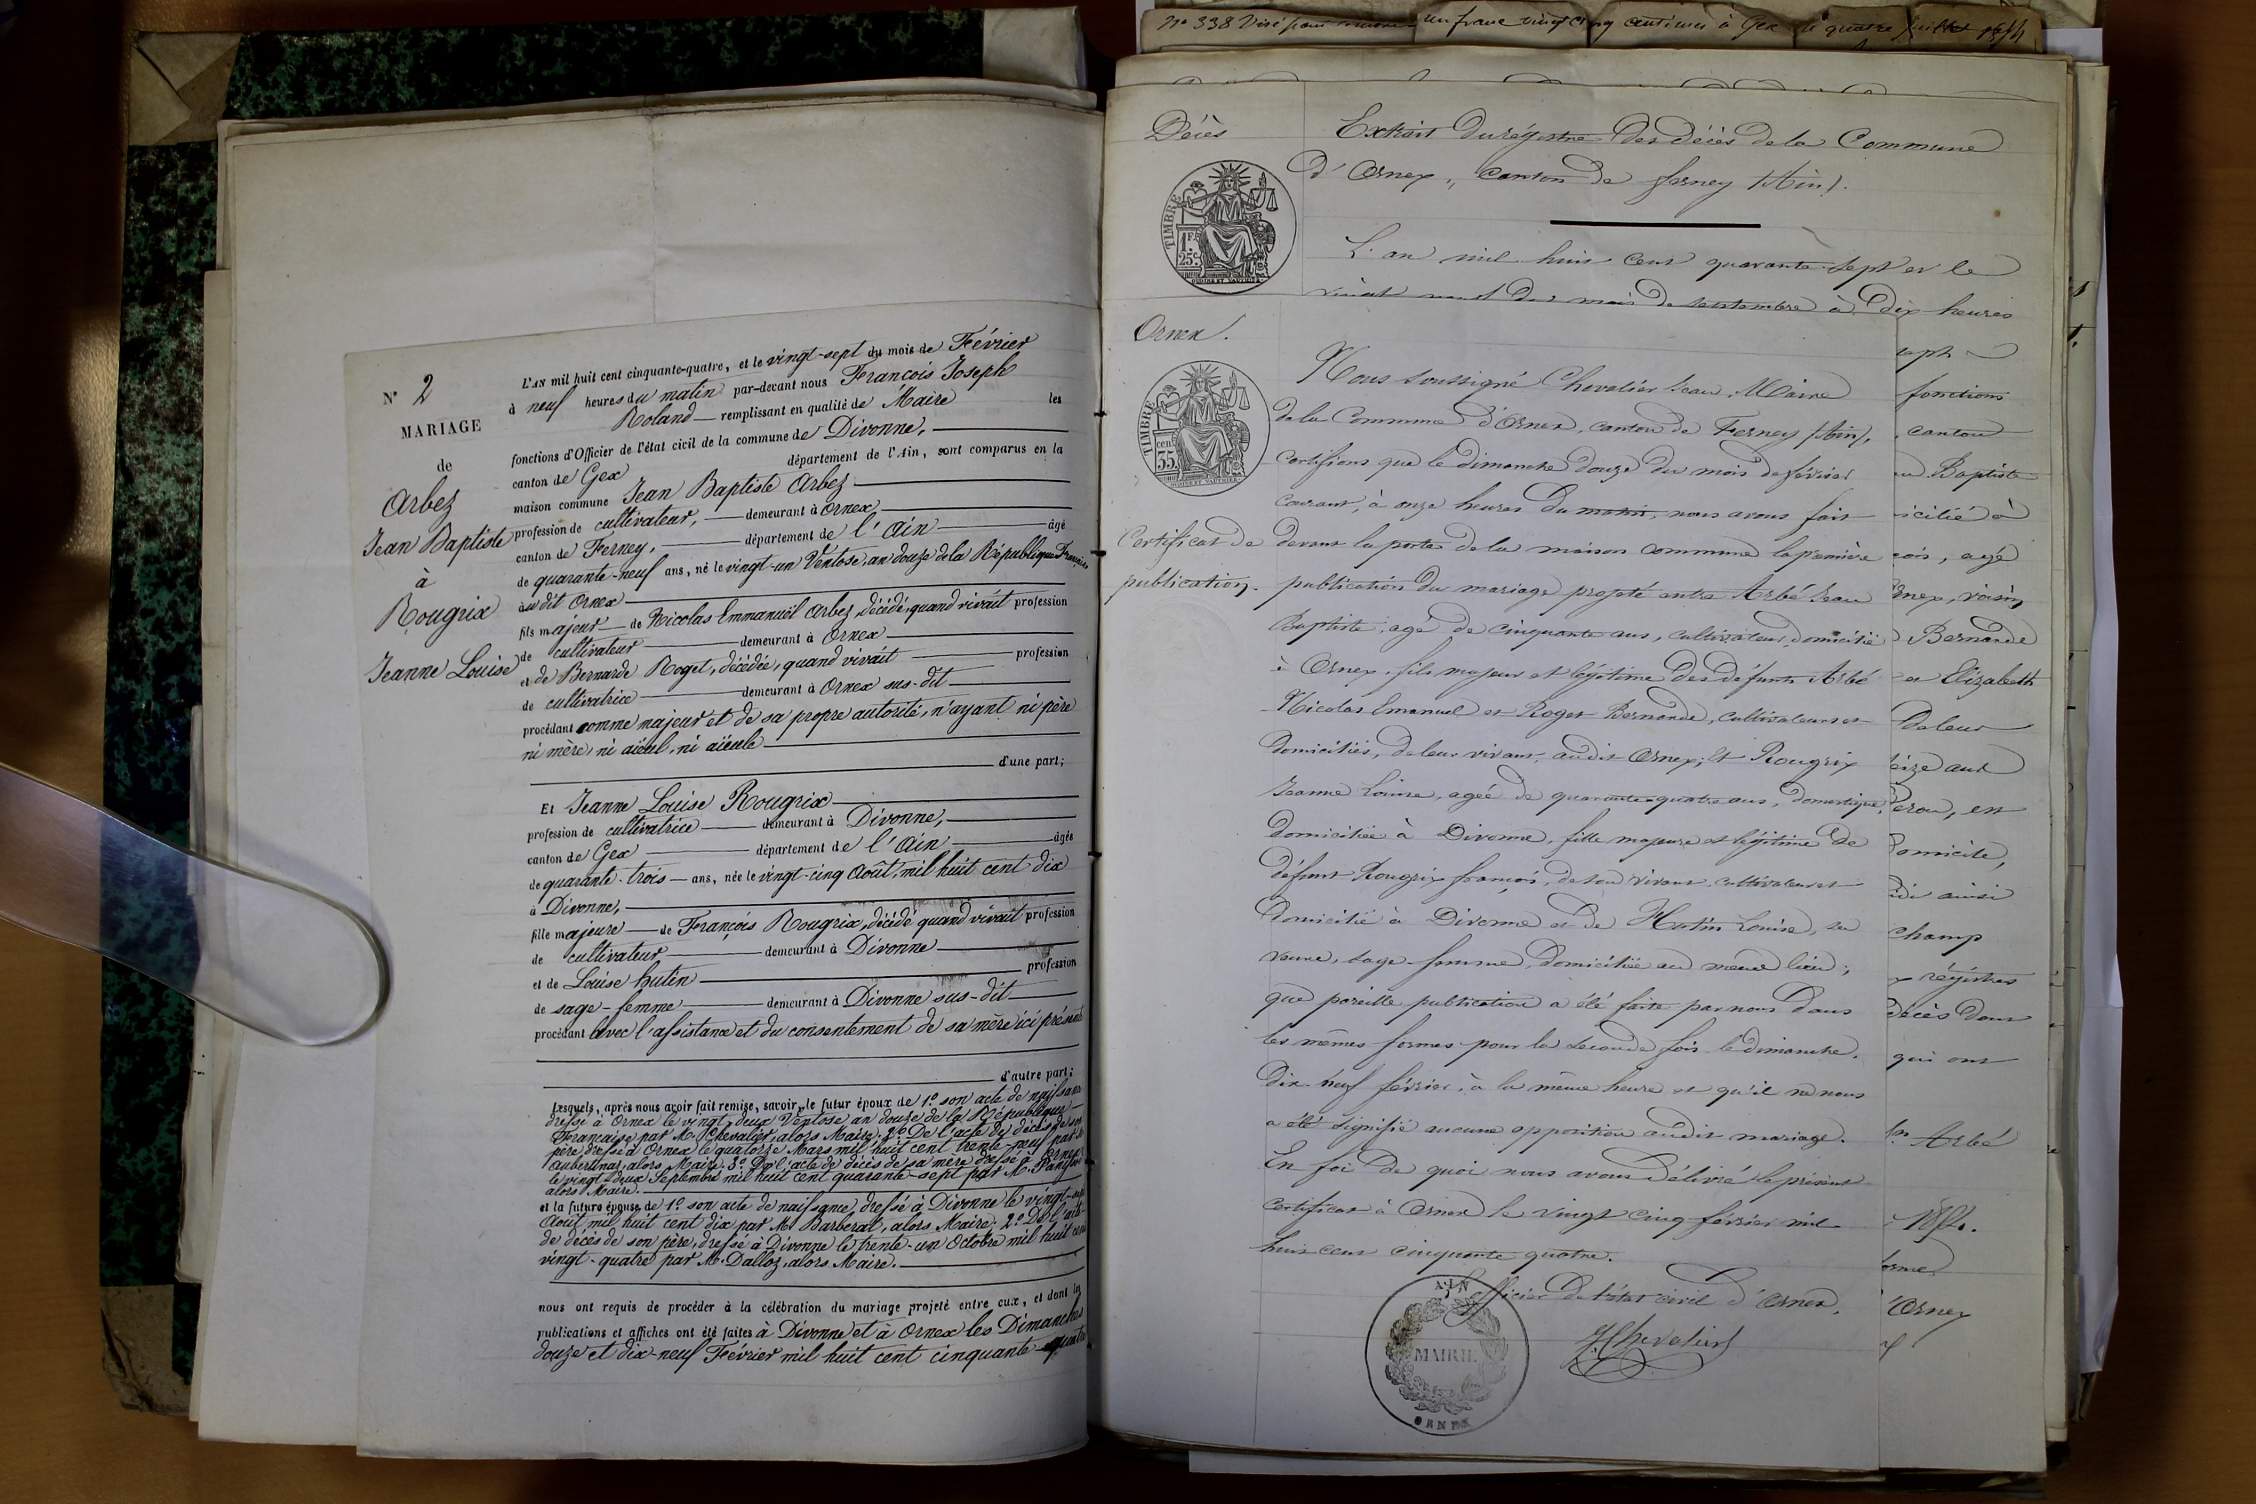 N° 2
MARIAGE
de
Arbez
Jean Baptiste
à
Rougrix
Jeanne Louise
L'AN mil huit cent cinquante-quatre, et le vingt-sept du mois de Février
à neuf heures du matin par-devant nous François Joseph
Roland remplissant en qualité de Maire les
fonctions d'Officier de l'état cicil de la commune de Divonne,
canton de Gex département de l'Ain, sont comparus en la
maison commune Jean Baptiste Arbez
profession de cultivateur, demeurant à Ornex
canton de Ferney, département de l'Ain âgé
de quarante-neuf ans, né le vingt-un Ventose, an douze de la République Française
au dit Ornex
fils majeur de Nicolas Emmanuël Arbez, décédé, quand vivait profession
de cultivateur demeurant à Ornex
et de Bernarde Roget, décédée, quand vivait profession
de cultivatrice demeurant à Ornex sus-dit
procédant comme majeur et de sa propre autorité, n'ayant ni père
ni mère, ni aïeul, ni aïeule
d'une part;
Et Jeanne Louise Rougrix
profession de cultivatrice demeurant à Divonne,
canton de Gex département de l'Ain âgée
de quarante-trois ans, née le vingt-cinq Août, mil huit cent dix
à Divonne,
fille majeure de François Rougrix, décédé quand vivait profession
de cultivateur demeurant à Divonne
et de Louise hutin profession
de sage-femme demeurant à Divonne sus-dit
procédant avec l'assistance et du consentement de sa mère ici présente
d'autre part;
Lesquels, après nous avoir fait remise, savoir, le futur époux de 1° son acte de naissance
dressé à Ornex le vingt-deux Ventose, an douze de la République
Française par M. Chevalier, alors Maire; 2° De l'acte de décès de son
père, dressé à Ornex le quatorze Mars mil huit cent trente-neuf par M.
alors Maire. 3° De l'acte de décès de sa mère dressé à Ornex
le vingt-deux Septembre mil huit cent quarante-sept par M.
alors Maire.
et la future épouse de 1° son acte de naissance, dressé à Divonne le vingt-
Août mil huit cent dix par M. Barberat, alors Maire; 2° De l'acte
de décès de son père, dressé à Divonne le trente-un Octobre mil huit cent
vingt-quatre par M. Dalloz, alors Maire.
nous ont requis de procéder à la célébration du mariage projeté entre eux, et dont les
publications et affiches ont été faites à Divonne et à Ornex les Dimanches
douze et dix-neuf Février mil huit cent cinquante-quatre
N° 338 Visé pour un franc vingt cinq centimes à Gex le quatre
Décès
Extrait du régistre des décès de la Commune
d'Ornex, canton de ferney (Ain).
TIMBRE
1F.
25c.
L'an mil huit cent quarante-sept et le
vingt neuf du mois de septembre à dix heures
Ornex.
TIMBRE
cent
35
Certificat de
publication.
Nous soussigné Chevalier Jean, Maire
de la Commune d'Ornex, canton de Ferney (Ain),
certifions que le dimanche douze du mois de février
courant, à onze heures du matin, nous avons fait
devant la porte de la maison commune la première
publication du mariage projeté entre Arbé Jean
Baptiste, agé de cinquante ans, cultivateur, domicilié
à Ornex, fils majeur et légitime des défunts Arbé
Nicolas Emanuel et Roget Bernande, cultivateurs et
domiciliés, de leur vivant, audit Ornex; et Rougrix
Jeanne Louise, agée de quarante-quatre ans, domestique,
domiciliée à Divonne, fille majeure et légitime de
défunt Rougrix françois, de son vivant cultivateur et
domicilié à Divonne et de Hutin Louise, sa
veuve, sage-femme, domiciliée au même lieu;
que pareille publication a été faite par nous dans
les mêmes formes pour la seconde fois le dimanche
dix-neuf février, à la même heure et qu'il ne nous
a été signifié aucune opposition audit mariage.
En foi de quoi nous avons délivré le présent
certificat à Ornex le vingt cinq février mil
huit cent cinquante quatre.
L'officier de l'état civil d'Ornex,
J. Chevalier
AIN
MAIRIE
ORNEX
fonctions
canton
Baptiste
agé
voisin
Bernande
et Elizabeth
de leur
domicile,
ainsi
champ
régistres
décès dont
qui ont
Arbé
1854.
Ornex